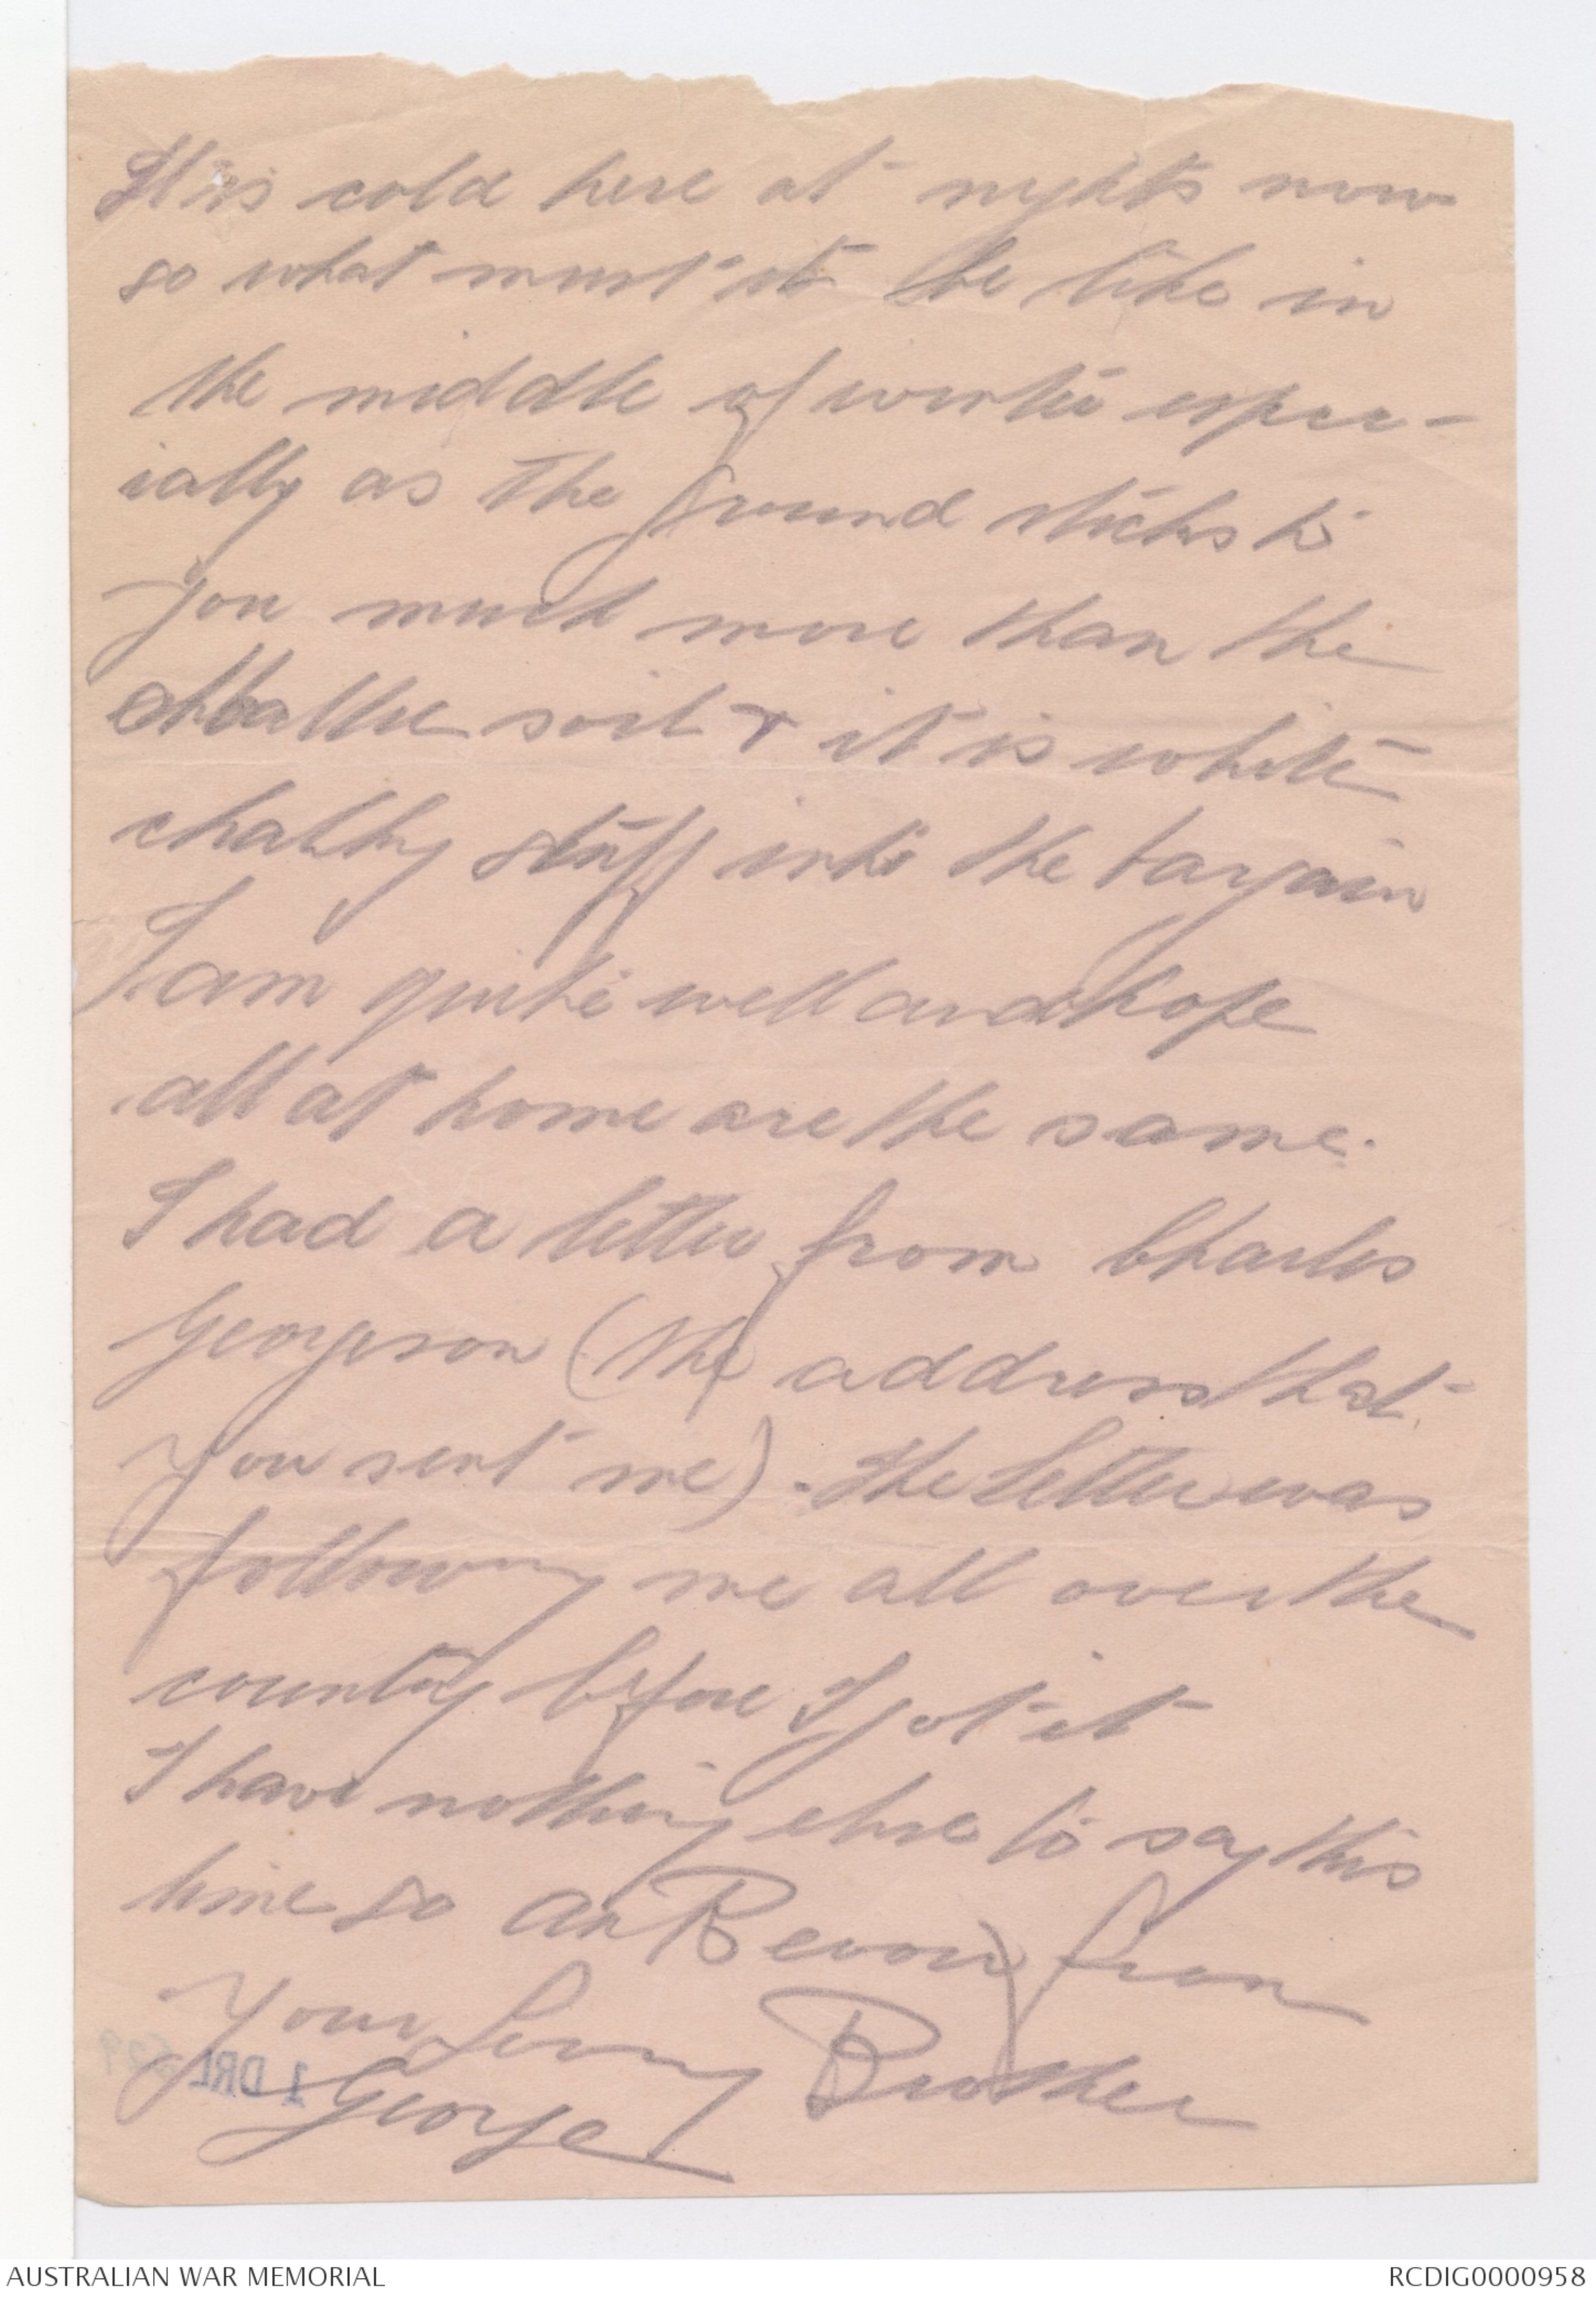 It is cold here at nights now
so what must it be like in
the middle of winter espec-
ially as the ground sticks to
you much more than the
mallee soil & it is white
chalky stuff into the bargain
I am quite well and hope
all at home are the same.
I had a letter from Charles
Georgeson (the address that
you sent me). The letter was
following me all over the
country before I got it
I have nothing else to say this
time so Au Revoir from
Your loving Brother
George
1 DRL
AUSTRALIAN WAR MEMORIAL
RCDIG0000958